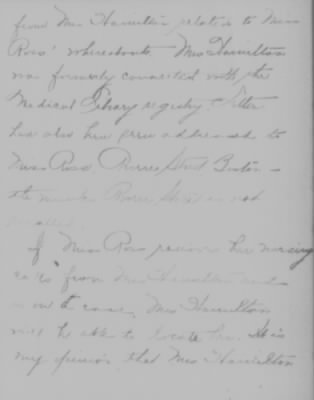 from Mrs Hamilton relates to Miss
Ross' whereabouts. Mrs Hamilton
was formerly connected with the
Medical Library registry. Letter
has also been addressed to
Miss Ross Street Boston –
the not

If Miss Ross her nursing
from Mrs Hamilton and
is on the case, Mrs Hamilton
will be able to locate her. It is
my opinion that Mrs Hamilton